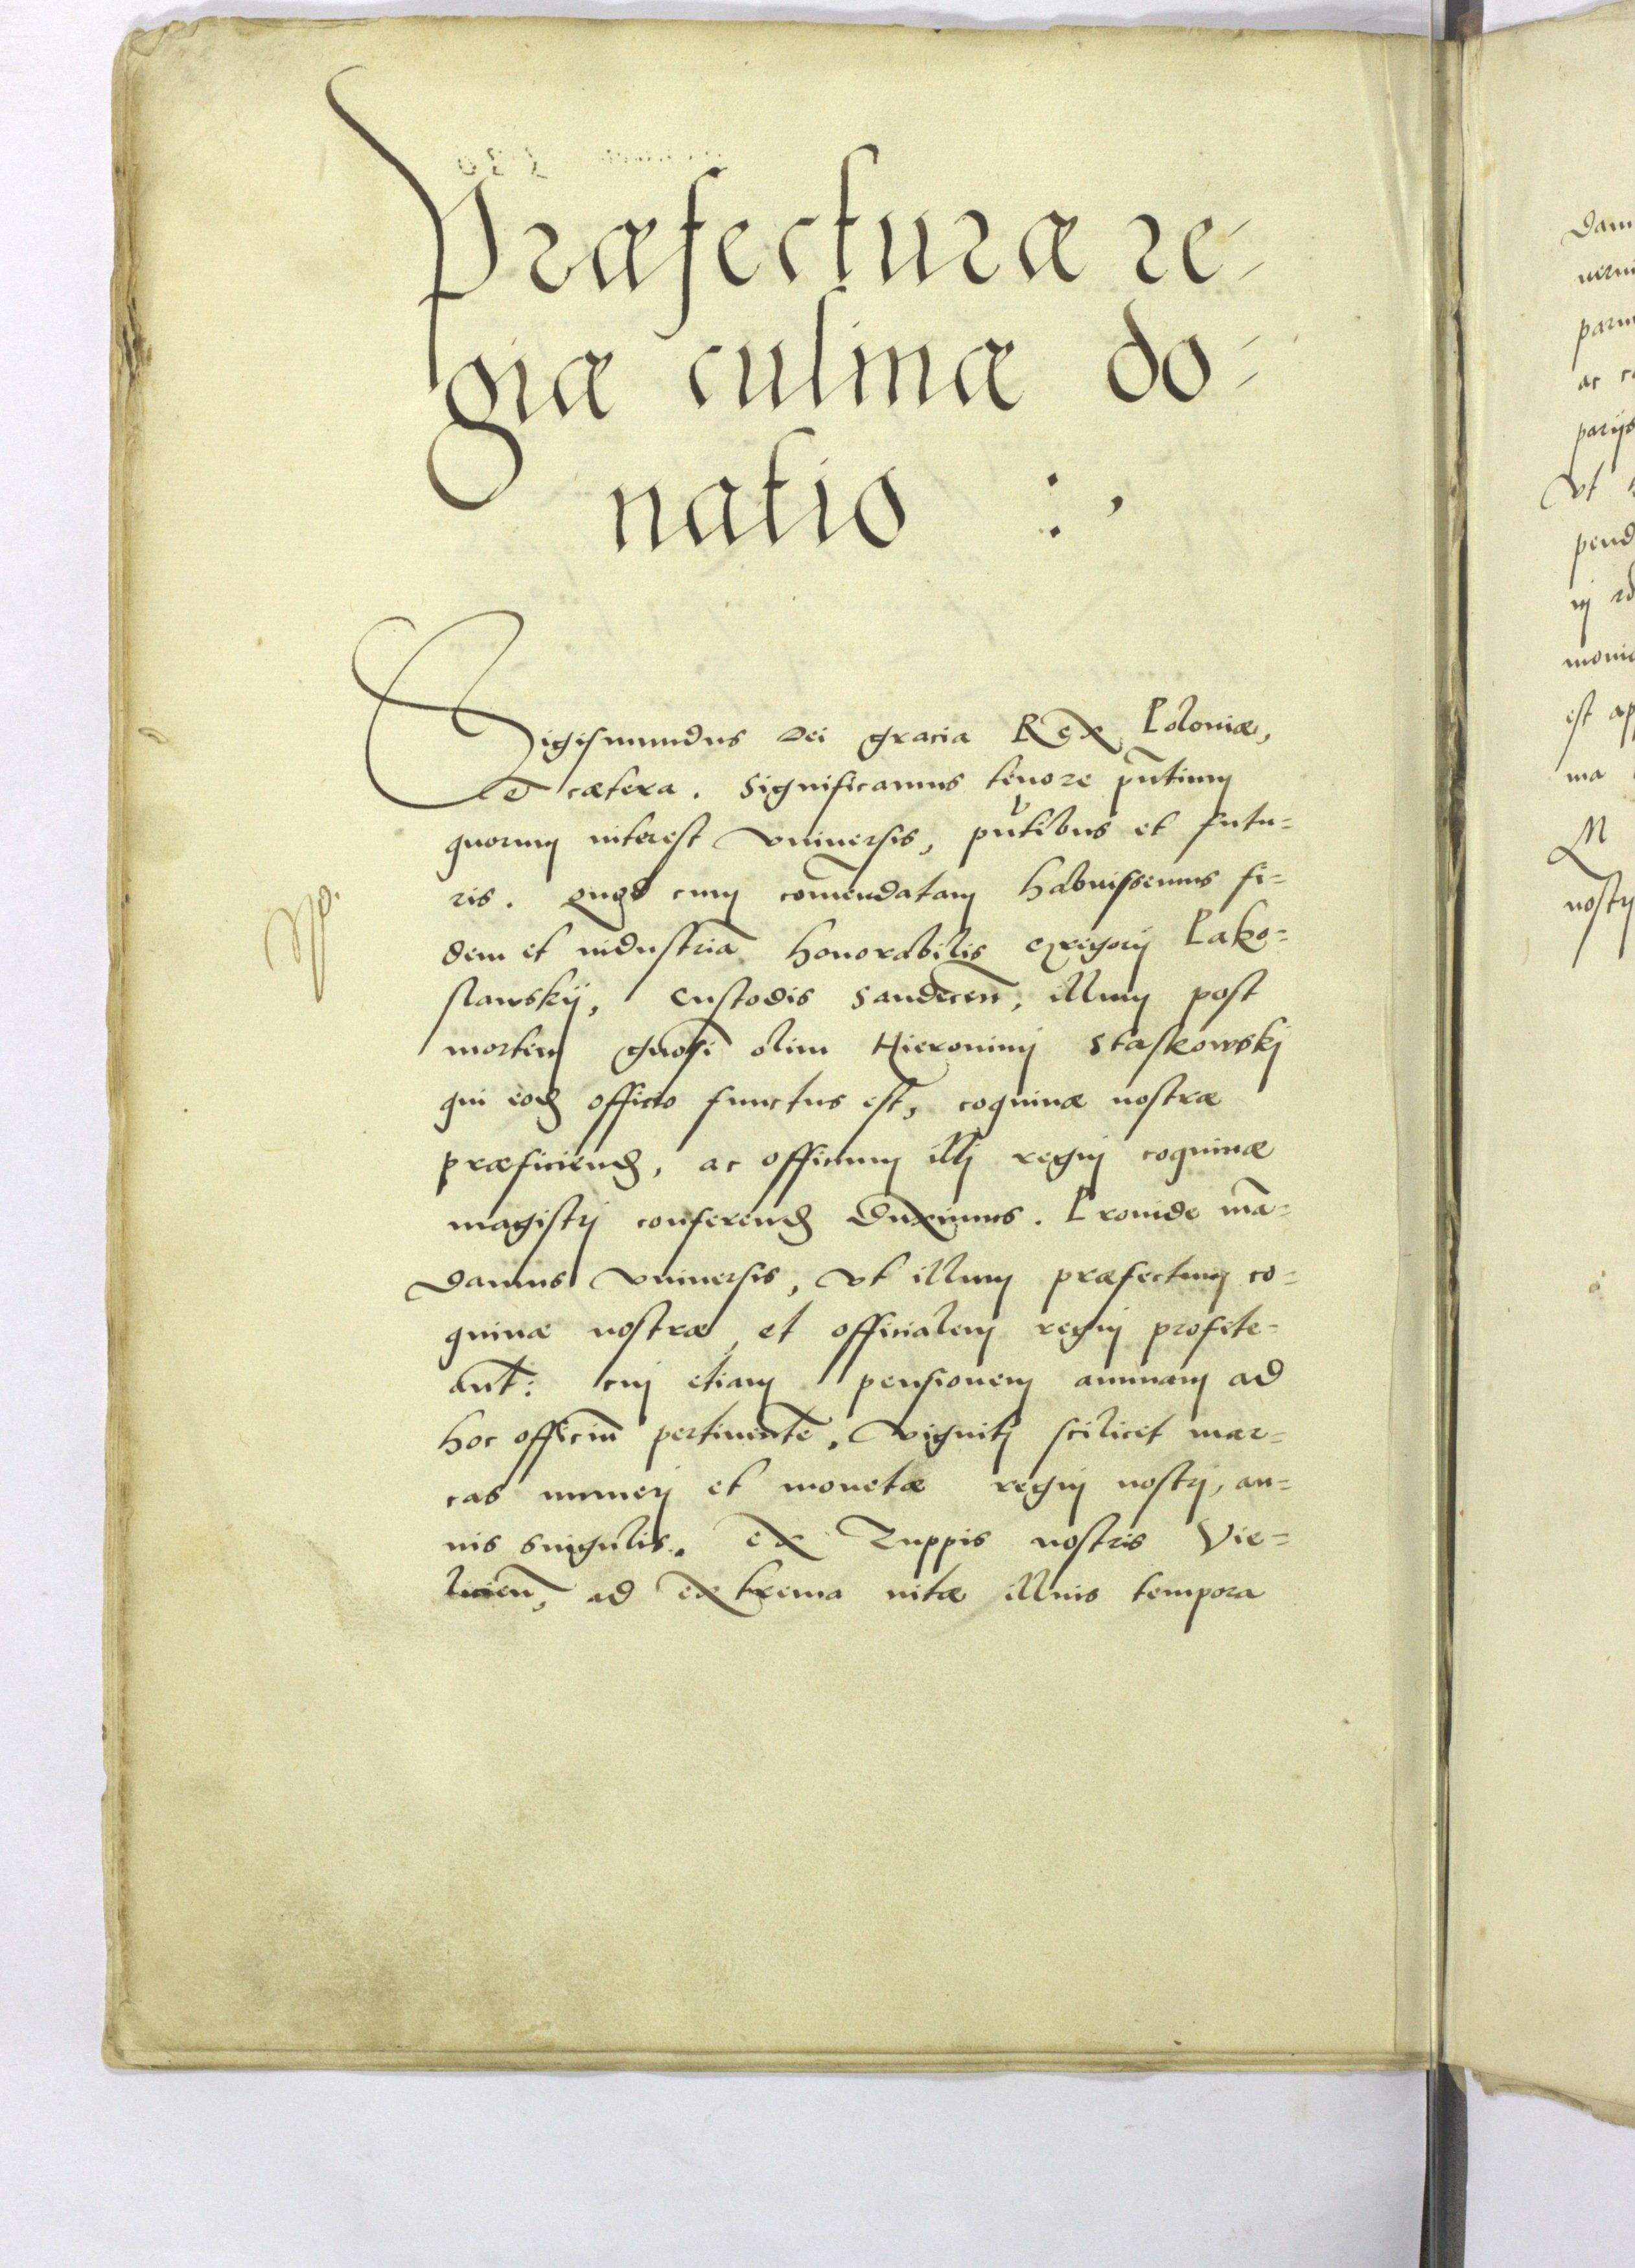 Præfecturæ re-
giæ culinæ do-
natio :,
Sigismundus Dei gracia Rex Poloniæ,
cætera. Significamus tenore pñtium
quorum interest vniuersis, pñtibus et futu-
ris. Quod cum comēndatam habuissemus fi-
dem et industriā honorabilis Gregorij Lako-
slawskij, Custodis Sandecen̄, illum post
mortem gñosi olim Hieronimj Staskowskj
qui eod officio functus est, coquinæ nostræ
præficiend, ac officium illj regnj coquinæ
magistrj conferend duximus. Prouide mā-
damus vniuersis, vt illum præfectum co-
quinæ nostræ, et officialem regnj profite-
ant: cuj etiam pensionem annuam ad
hoc officiū pertinentē, vigintj scilicet mar-
cas numerj et monetæ regnj nostrj, an-
nis singulis. ex Zuppis nostris Vie-
licien̄, ad extrema uitæ illius tempora
dam
parm
ac
parijs
vt
pend
est ap
ma
M
nostrj